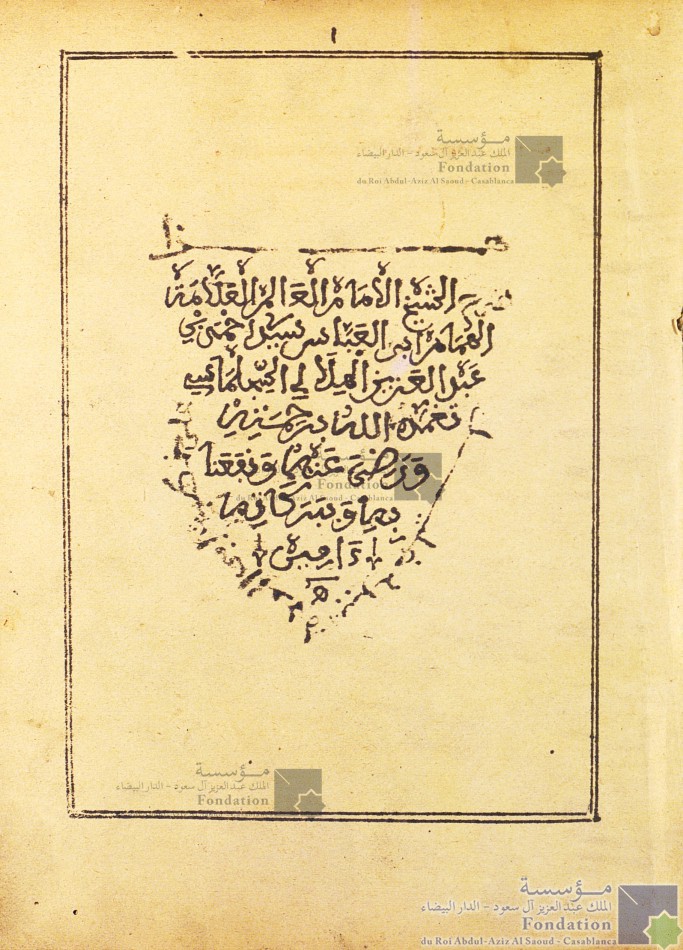 ١
هذا
الشيخ الامام العالم العلامة
الهمام ابى العباس سيد احمد بن
عبد العزيز الهلالي السجلماسي
تغمده الله برحمته
ورضي عنه ونفعنا
به وببركاته
ءامين
ه
مؤسسة
الملك عبد العزيز آل سعود - الدار البيضاء
Fondation
du Roi Abdul-Aziz Al Saoud - Casablanca
Fondation
du Roi Abdul-Aziz Al Saoud - Casablanca
مؤسسة
الملك عبد العزيز آل سعود - الدار البيضاء
Fondation
مؤسسة
الملك عبد العزيز آل سعود - الدار البيضاء
Fondation
du Roi Abdul-Aziz Al Saoud - Casablanca